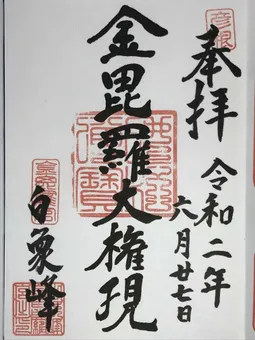 奉拝
令和二年
六月廿七日
金毘羅大権現
白象峰
彦根